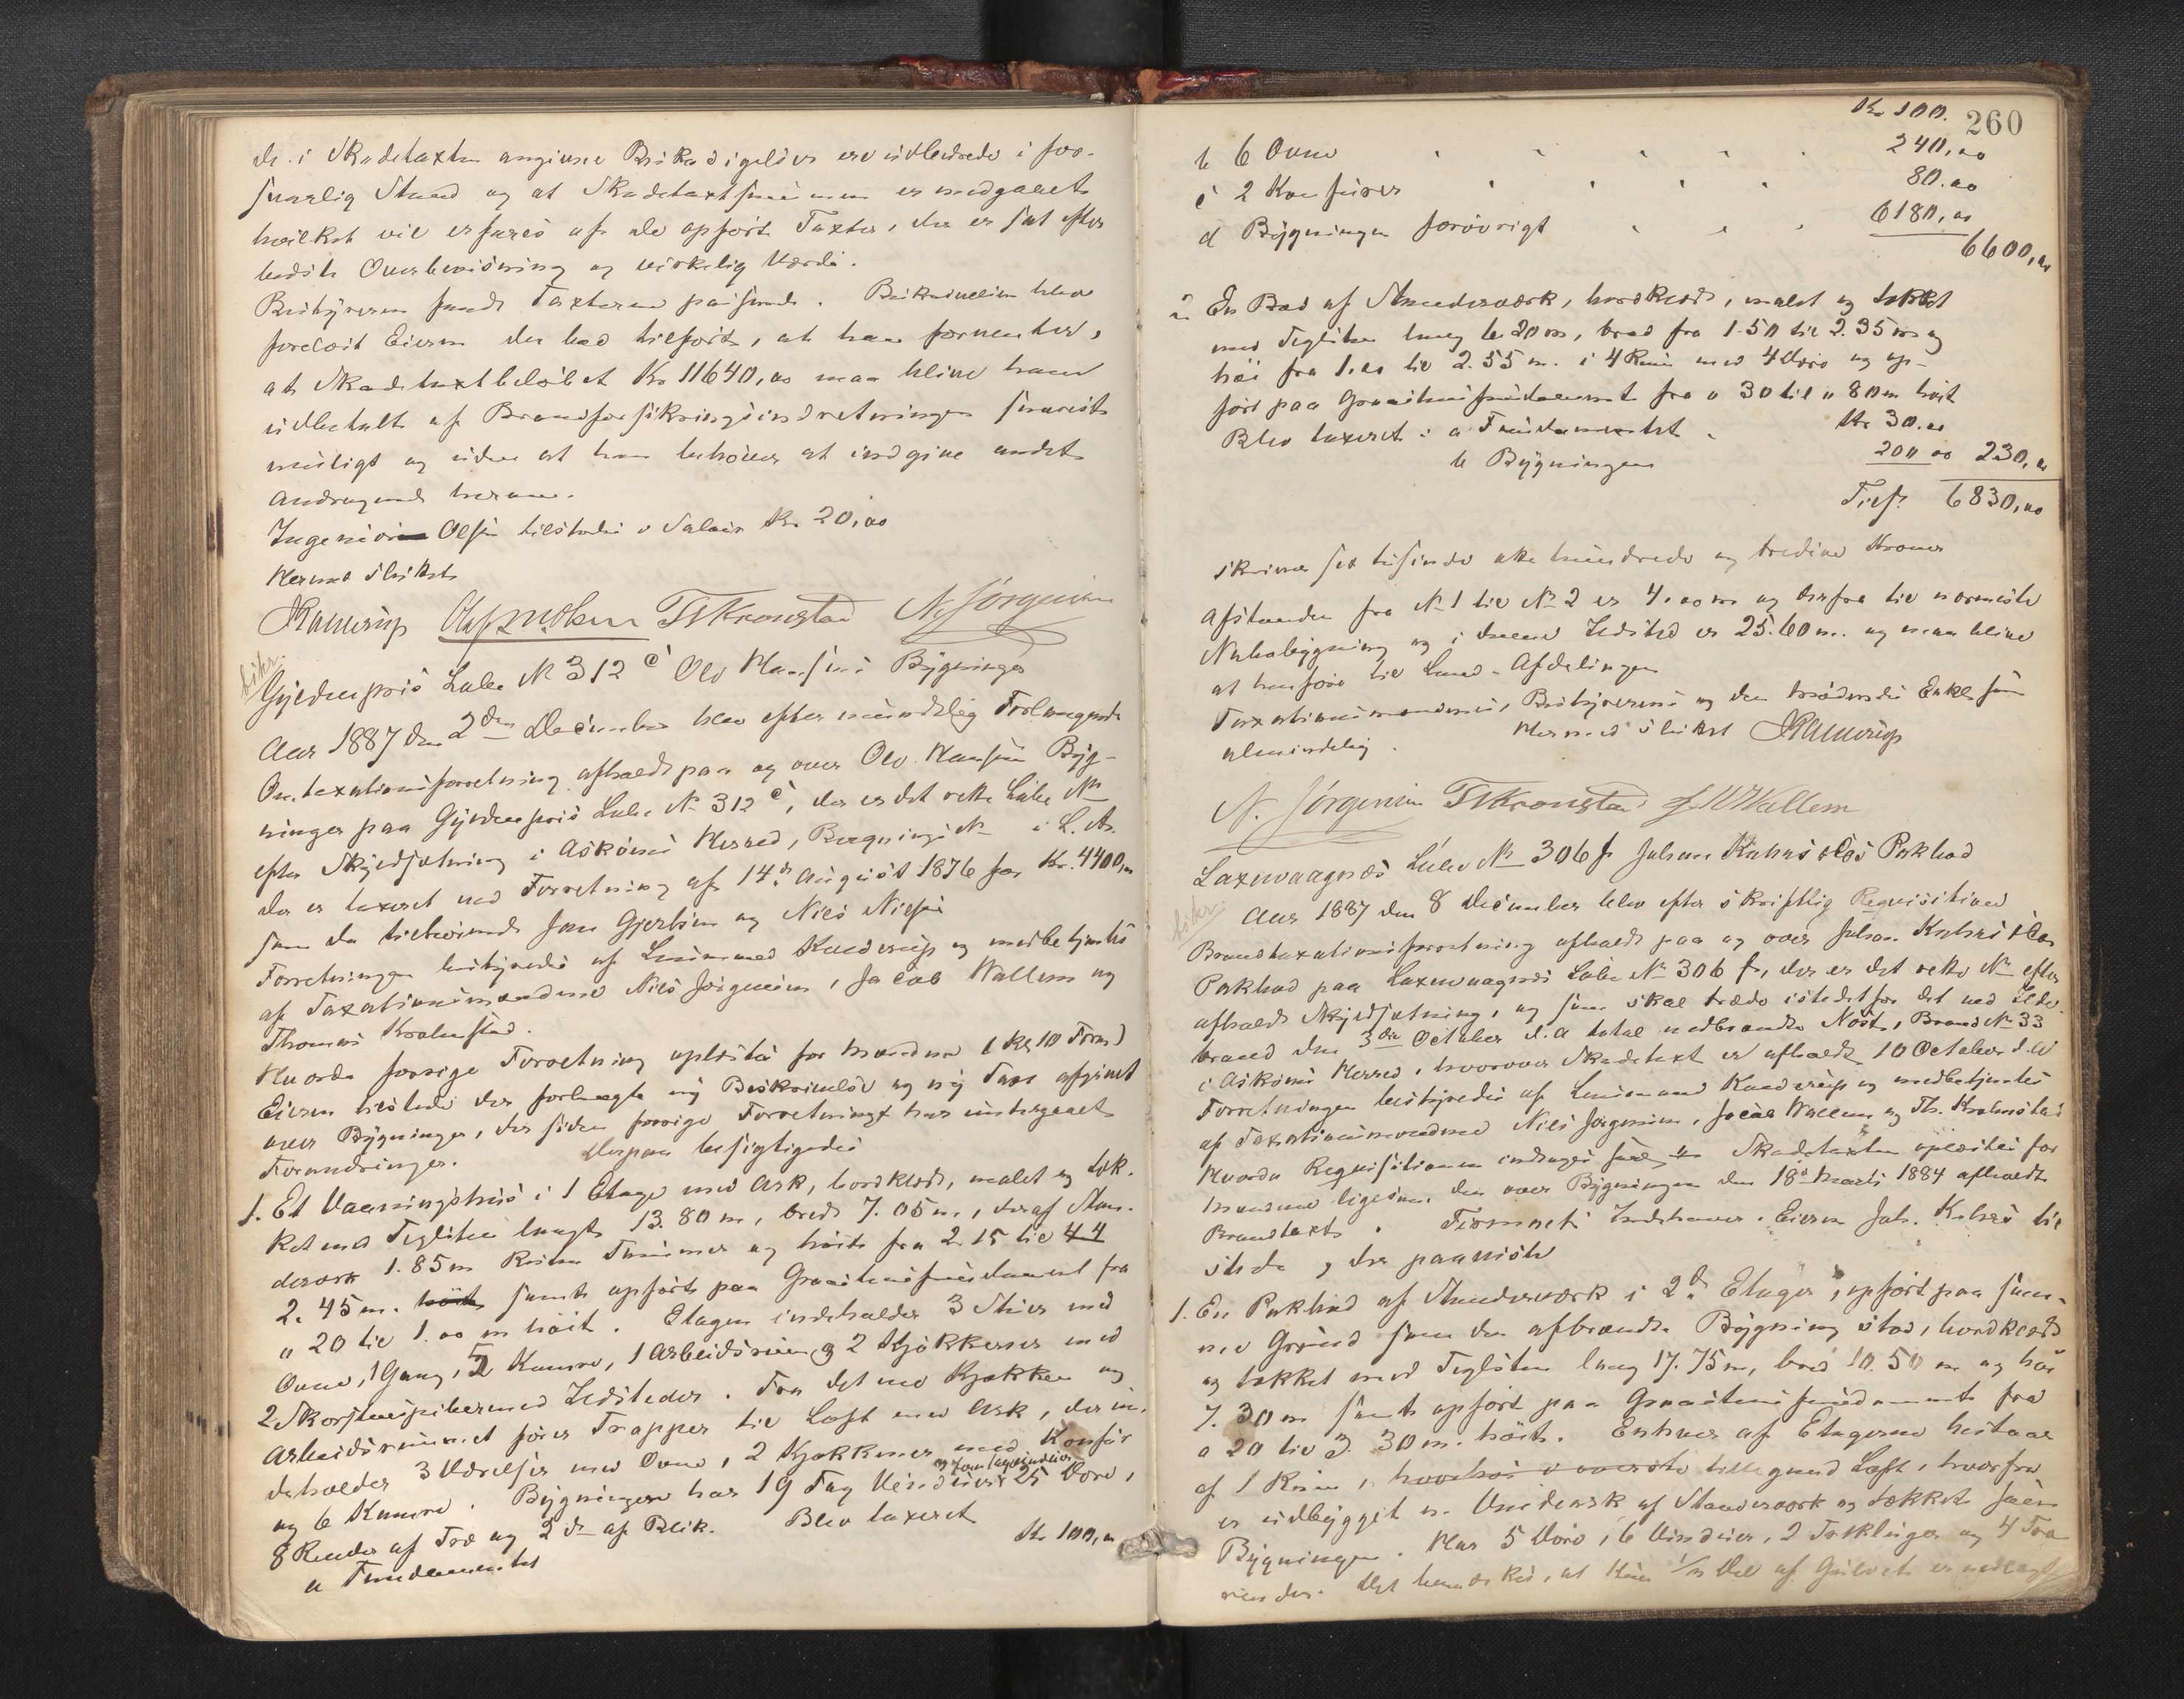 de i Skadetaxten angivne Beskadigelser ere udbedrede i for-
svarlig Stand og at Skadetaxtsummen er medgaaet
hvilket vil erfares af de opførte Taxter, der er sat efter
bedste Overbevisning og virkelig Værdi.
Bestyreren fandt Taxterne passende. Beskrivelsen blev
forelæst Eieren der bad tilført, at han forventer,
at Skadetaxtbeløbet Kr 11640,00 maa blive ham
udbetalt af Brandforsikringsindretningen snarest
muligt og uden at han behøver at indgive andet
Andragende herom.
Ingeniør Olsen tilstodes i Salair Kr. 20,00
Hermed sluttet
JKamerup Olaf M Olsen Th Kronstad N. Jørgensen
Gyldenpris Løbe N 312 c Ole Hansens Bygninger
Aar 1887 den 2den December blev efter mundtlig Forlangende
Omtaxationsforretning afholdt paa og over Ole Hansens Byg-
ninger paa Gyldenpris Løbe No 312 c, der er det rette Løbe No
efter Skyldsætning i Askøens Herred, Bygnings No i L. A.
der er taxeret ved Forretning af 14de August 1876 for Kr. 4400,00
som da tilhørende Jon Gjertsen og Nils Nilsen
Forretningen bestyredes af Lensmand Kamerup og medbetjentes
af Taxationsmændene Nils Jørgensen, Jacob Wallem og
Thomas Kronstad.
Hvorda forrige Forretning oplæstes for Mændene
Eieren tilstede der forlangte ny Beskrivelse og ny Taxt afgivet
over Bygninger, der siden forrige Forretning har undergaaet
Forandringer. Derpaa besigtigedes
1. Et Vaaningshus i 1 Etage med Ark, bordklædt, malet og tæk-
ket med Teglsten langt 13.80 m, bredt 7.05 m, deraf Stan-
derværk 1.85 m Resten Tømmer og høit fra 2.15 til 44
2.45 m. høit samt opført paa Graastensfundament fra
0 20 til 1.00 m høit. Etagen indeholder 3 Stuer med
Ovne, 1 Gang, 2 Kamre, 1 Arbeidsrum og 2 Kjøkkener med
2 Skorstenspiber med Ildsteder. Fra det ene Kjøkken og
Arbeidsrummet fører Trapper til Loft med Ark, der in-
deholder 3 Værelser med Ovne, 2 Kjøkkener med Konfur
og 6 Kamre. Bygningen har 19 Fag Vinduer 25 Døre,
8 Render af Træ og 2 do af Blik. Blev taxeret
a Fundamentet Kr 100,00
260
Kr 100.
b 6 Ovne 240,00
c 2 Konfurer 80.00
d Bygningen forøvrigt 6180,00
6600,00
2 En Bod af Standerværk, bordklædt, malet og tækket
med Teglsten lang 6.20 m, bred fra 1.50 til 2.35 m og
høi fra 1.00 til 2.55 m. i 4 Rum med 4 Døre og op-
ført paa Graastensfundament fra 0 30 til 0 80 m høit
Blev taxeret: a Fundamentet Kr 30.00
b Bygningen 200 00 230,00
Tils. 6830,00
skriver sex tusinde otte hundrede og tredive Kroner
Afstanden fra No 1 til No 2 er 4.00 m og derfra til nærmeste
Nabobygning og i denne Ildsted er 25.60 m. og maa blive
at henføre til Land-Afdelingen
Taxationsmændenes, Bestyrerens og den
almindelig. Hermed sluttet JKamerup
N. Jørgensen Th Kronstad J. W Wallem
Laxevaagnes Løbe No 306 f Johan Kahrs & Cos Pakbod
Aar 1887 den 8 December blev efter skriftlig Requisition
Brandtaxationsforretning afholdt paa og over Johan Kahrs & Cos
Pakbod paa Laxevaagnes Løbe No 306 f, der er det rette No efter
afholdt Skyldsætning, og som skal træde istedetfor det ved Ilde-
brand den 3die October d.A total nedbrændte Nøst, Brand No 33
i Askøens Herred, hvorover Skadetaxt er afholdt 10 October d.A
Forretningen bestyredes af Lensmand Kamerup og medbetjentes
af Taxationsmændene Nils Jørgensen, Jacob Wallem og Th. Kronstad
Hvorda Requisitionen indtages Skadetaxten oplæstes for
Mændene ligesom den over Bygningen den 18de Marts 1884 afholdte
Brandtaxt. Firmaets Indehaver, Eieren Joh. Kahrs til-
stede, der paaviste
1. En Pakbod af Standerværk i 2de Etager, opført paa sam-
me Grund som den afbrændte Bygning stod, bordklædt
og tækket med Teglsten lang 17.75 m, bred 10.50 m og høi
7.30 m samt opført paa Graastensfundament fra
0 20 til 3.30 m. høit. Enhver af Etagerne bestaar
af 1 Rum, hvorhos i øverste tillegmed Loft, hvorfra
er udbygget en Vindeark af Standerværk og tækket som
Bygningen. Har 5 Døre, 6 Vinduer, 2 og 4 Træ
render. Det bemærkes, at kun 1/2 Del af Gulvet er nedlagt